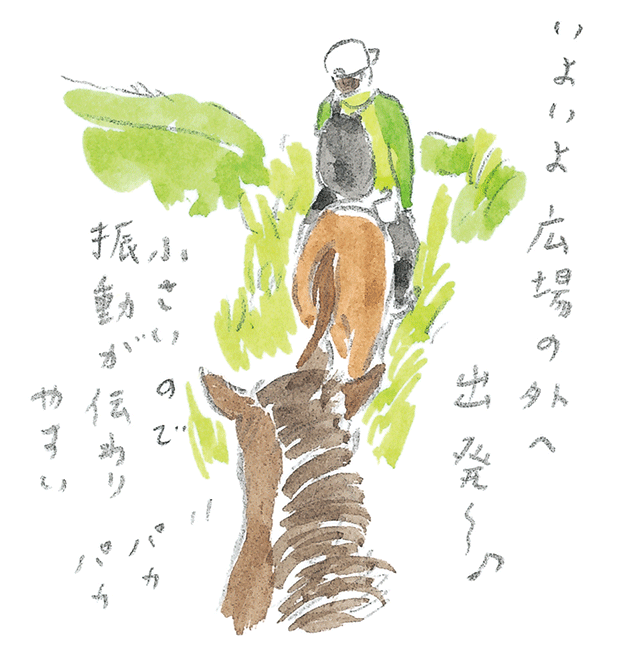 いよいよ広場の外へ
出発〜♪
小さいので
振動が伝わり
やすい
パカ
パカ